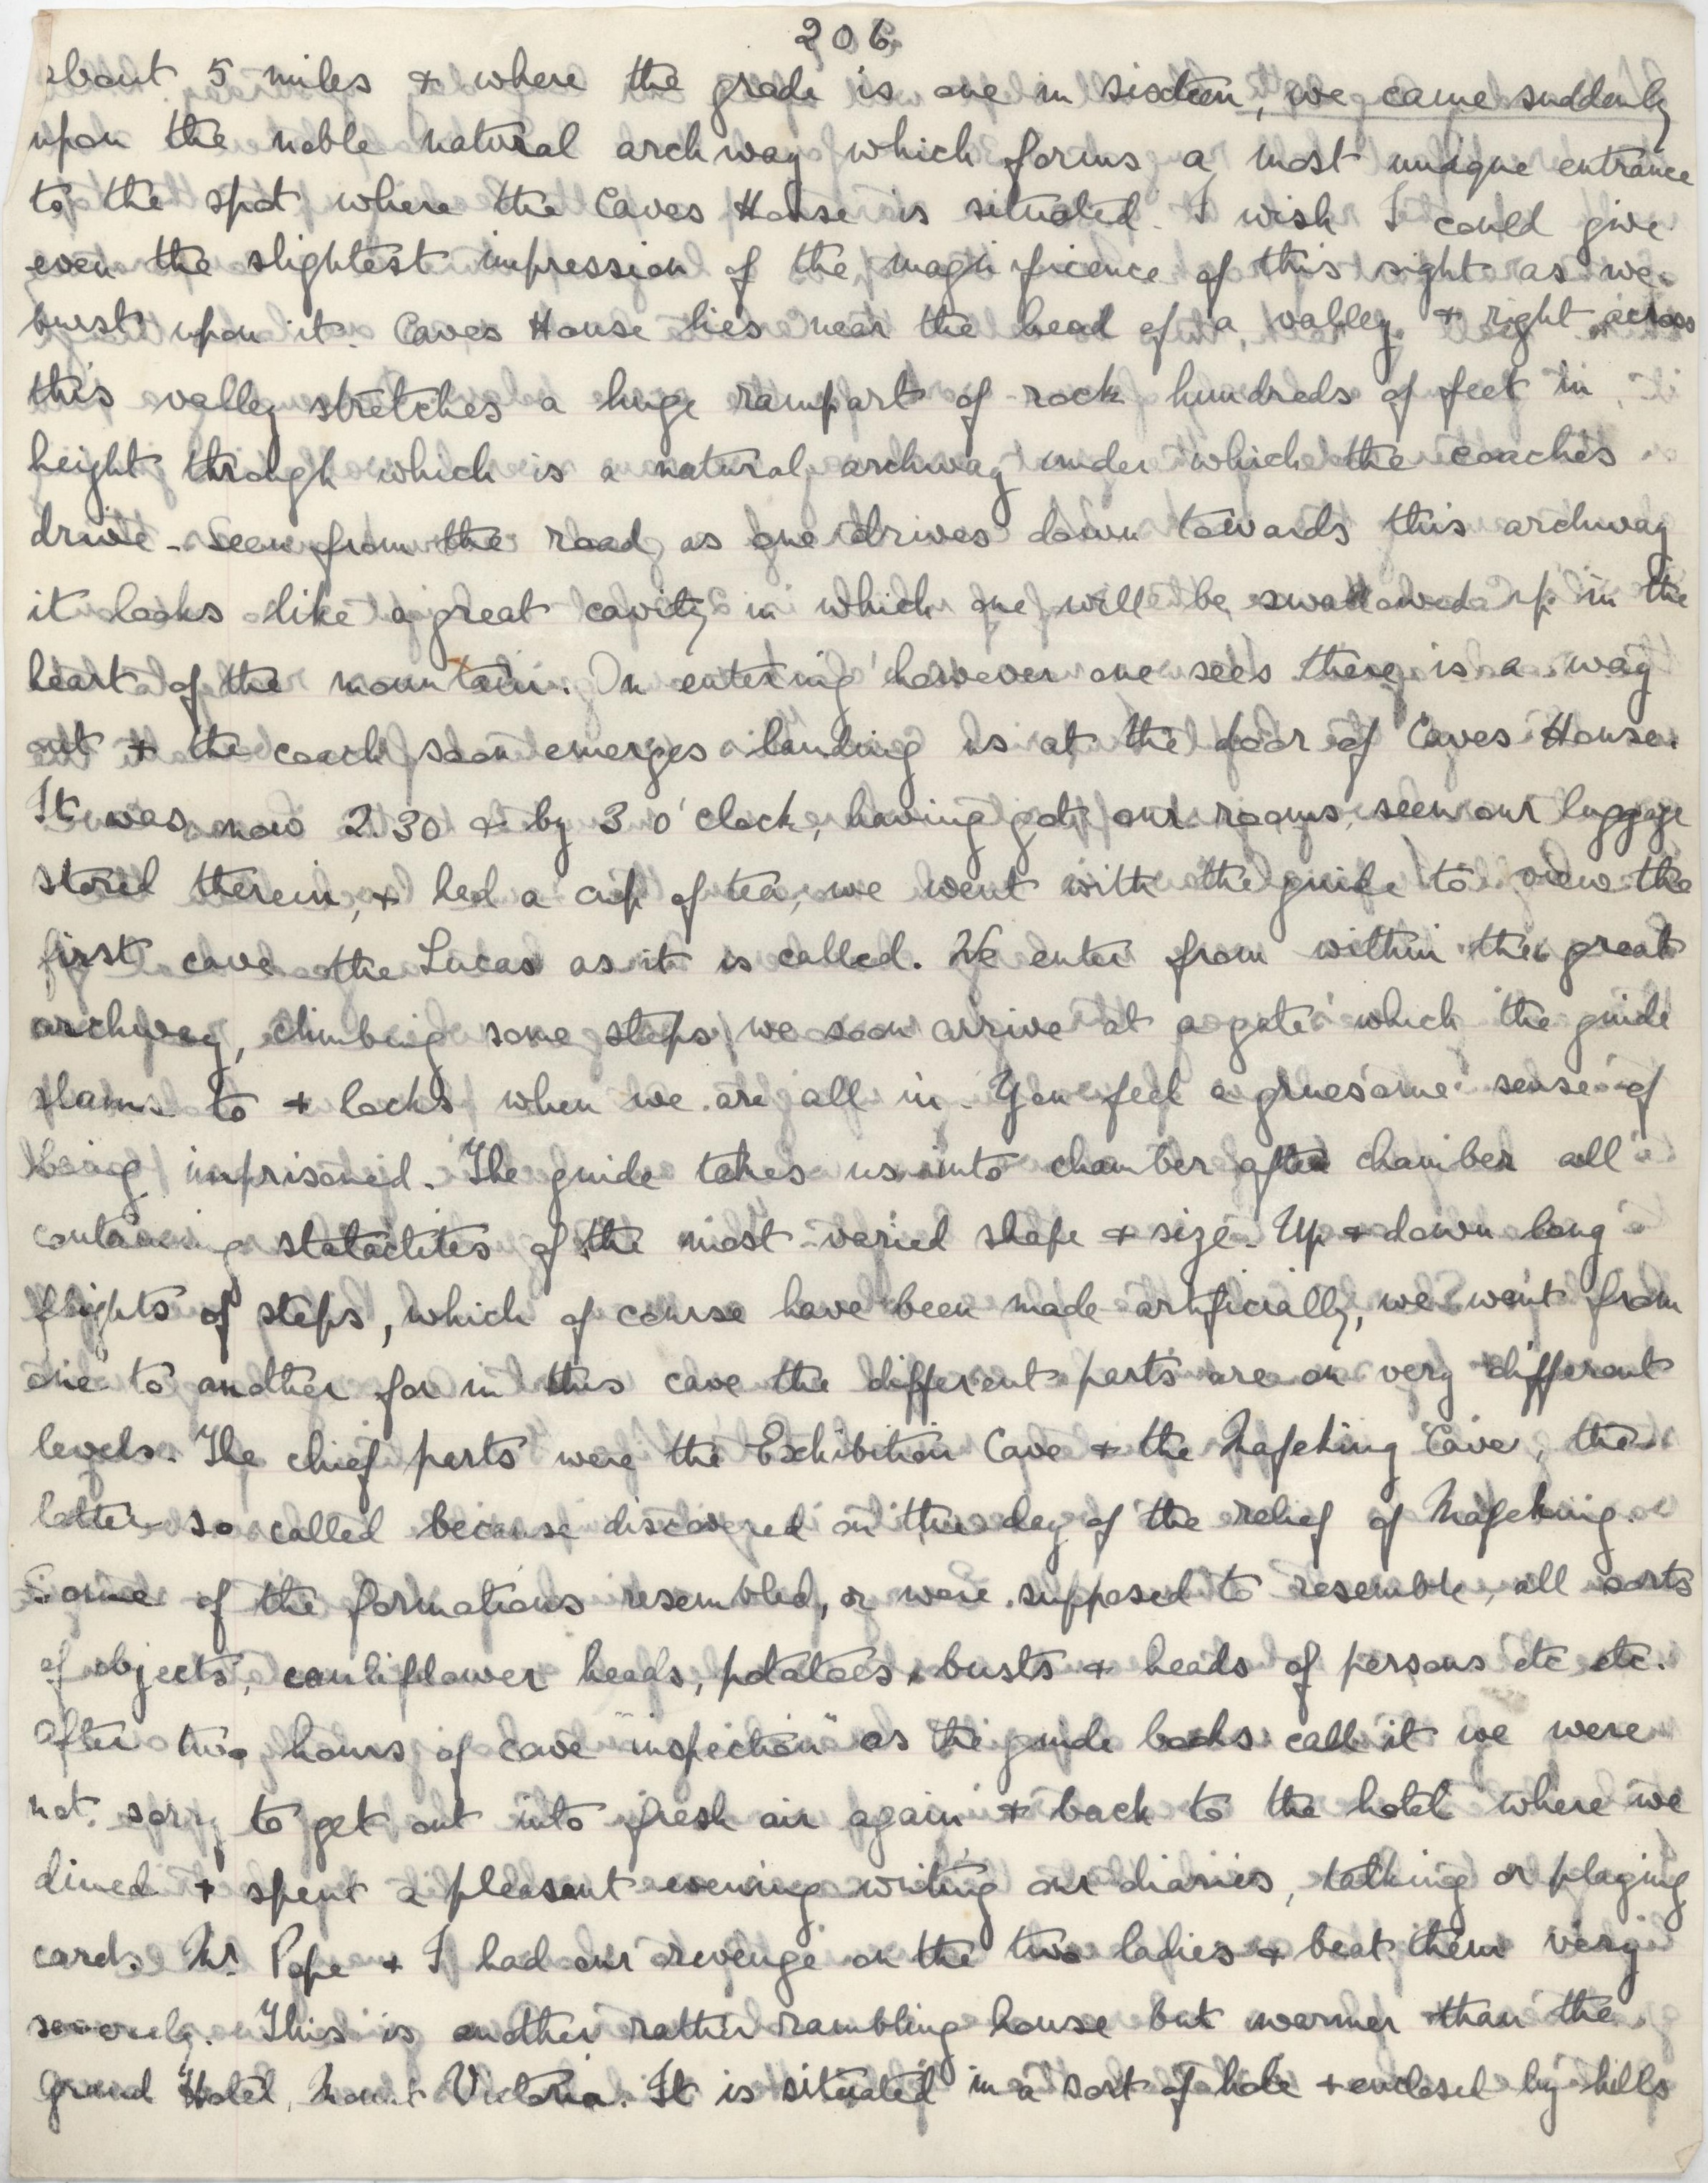 206
about 5 miles & where the grade is one in sixteen, we came suddenly
upon the noble natural archway which forms a most unique entrance
to the spot where the Caves House is situated. I wish I could give
even the slightest impression of the magnificence of this sight as we
burst upon it. Caves House lies near the head of a valley & right across
this valley stretches a huge rampart of rock hundreds of feet in
height through which is a natural archway under which the coaches
drive. Seen from the road as one drives down towards this archway
it looks like a great cavity in which one will be swallowed up in the
heart of the mountain. On entering however one sees there is a way
out & the coach soon emerges landing us at the door of Caves House.
It was now 2.30 & by 3 o'clock, having got our rooms, seen our luggage
stored therein, & had a cup of tea, we went with the guide to view the
first cave the Lucas as it is called. We enter from within the great
archway, climbing some steps we soon arrive at a gate which the guide
slams to & locks when we are all in. You feel a gruesome sense of
being imprisoned. The guide takes us into chamber after chamber all
containing statactites of the most varied shape & size. Up & down long
flights of steps, which of course have been made artificially, we went from
one to another for in this cave the different parts are on very different
levels. The chief parts were the Exhibition Cave & the Mafeking Cave, the
latter so called because discovered on the day of the relief of Mafeking.
Some of the formations resembled, or were supposed to resemble, all sorts
of objects, cauliflower heads, potatoes, busts & heads of persons etc etc.
After two hours of cave "inspection" as the guide books call it we were
not sorry to get out into fresh air again & back to the hotel where we
dined & spent a pleasant evening writing our diaries, talking or playing
cards. Mr. Pope & I had our revenge on the two ladies & beat them very
severely. This is another rather rambling house but warmer than the
Grand Hotel, Mount Victoria. It is situated in a sort of hole & enclosed by hills